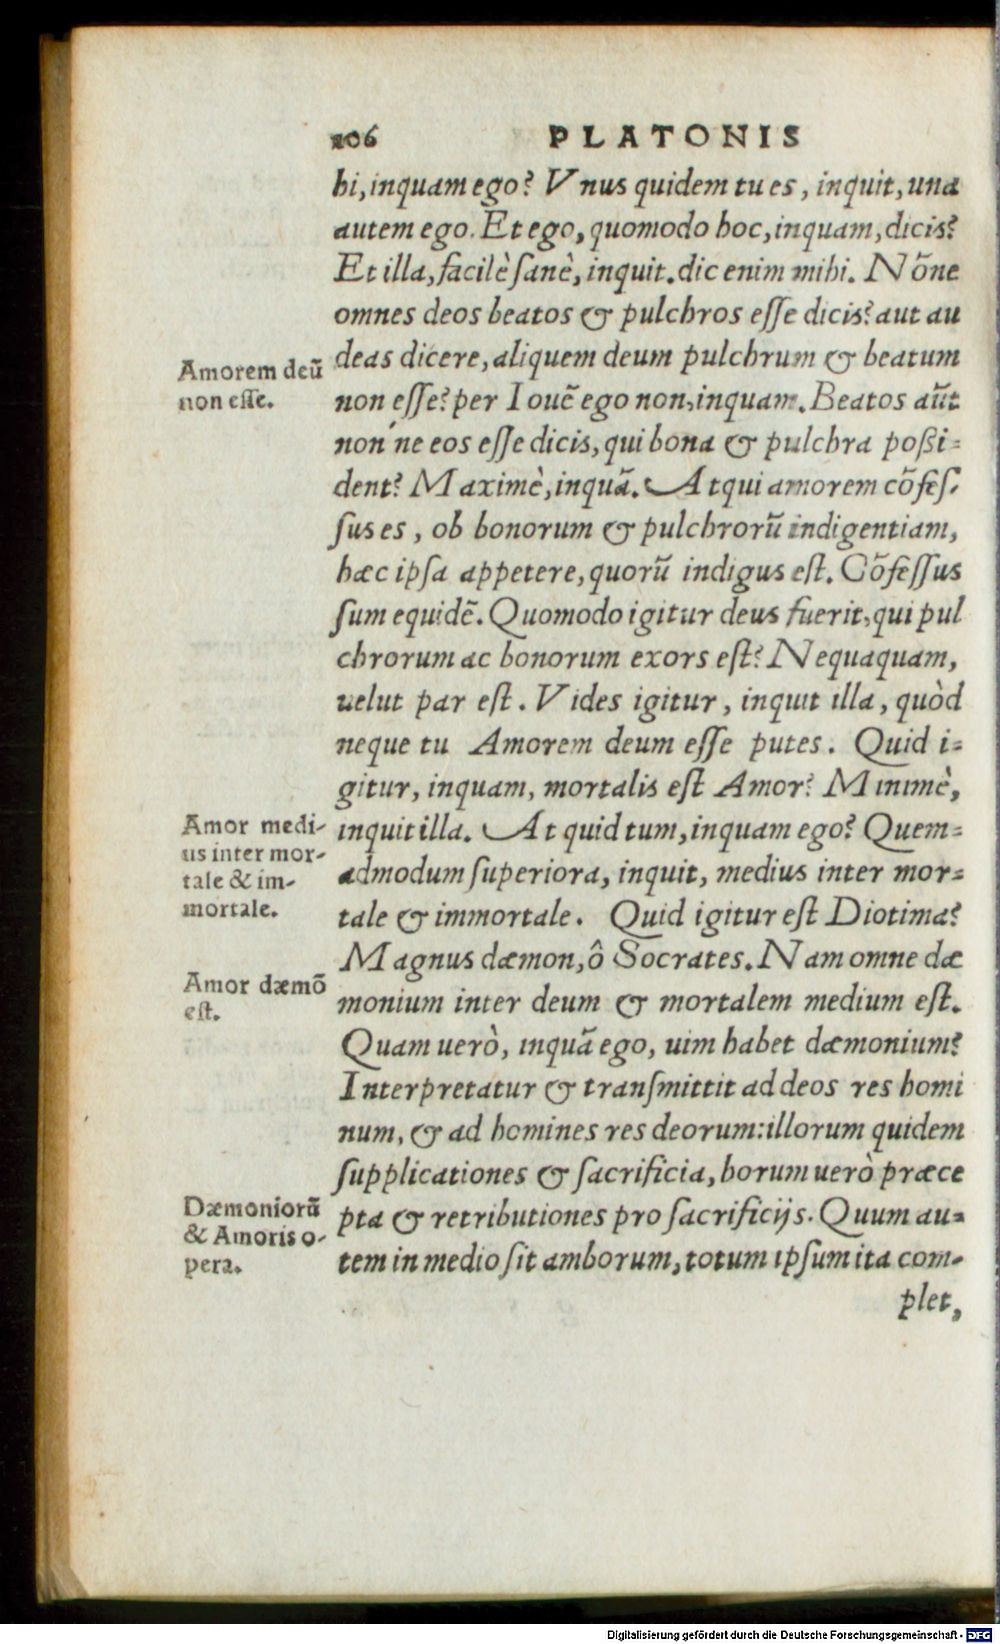 206 PLATONIS
hi, inquam ego? Vnus quidem tu es, inquit, una
autem ego. Et ego, quomodo hoc, inquam, dicis?
Et illa, facilè ſanè, inquit. dic enim mihi. Nõne
omnes deos beatos & pulchros eſſe dicis? aut au
deas dicere, aliquem deum pulchrum & beatum
non eſſe? per Iouẽ ego non, inquam. Beatos aũt
non'ne eos eſſe dicis, qui bona & pulchra poßi=
dent? Maximè, inquã. Atqui amorem cõfeſ-
ſus es, ob bonorum & pulchrorũ indigentiam,
hæc ipſa appetere, quorũ indigus eſt. Cõfeſſus
ſum equidẽ. Quomodo igitur deus fuerit, qui pul
chrorum ac bonorum exors eſt? Nequaquam,
uelut par eſt. Vides igitur, inquit illa, quòd
neque tu Amorem deum eſſe putes. Quid i=
gitur, inquam, mortalis eſt Amor? Minimè,
inquit illa. At quid tum, inquam ego? Quem=
admodum ſuperiora, inquit, medius inter mor=
tale & immortale. Quid igitur eſt Diotima?
Magnus dæmon, ô Socrates. Nam omne dæ
monium inter deum & mortalem medium eſt.
Quam uerò, inquã ego, uim habet dæmonium?
Interpretatur & tranſmittit ad deos res homi
num, & ad homines res deorum: illorum quidem
ſupplicationes & ſacrificia, horum uerò præce
pta & retributiones pro ſacrificijs. Quum au=
tem in medio ſit amborum, totum ipſum ita com-
plet,
Amorem deũ
non eſſe.
Amor medi-
us inter mor-
tale & im-
mortale.
Amor dæmõ
eſt.
Dæmoniorũ
& Amoris o-
pera.
Digitalisierung gefördert durch die Deutsche Forschungsgemeinschaft - DFG